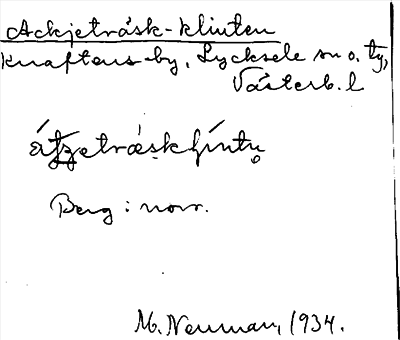 Ackjeträsk-klinten
Knaftens by, Lycksele sn o. ty,
Västerb. l
Berg i norr.
M. Neuman, 1934.